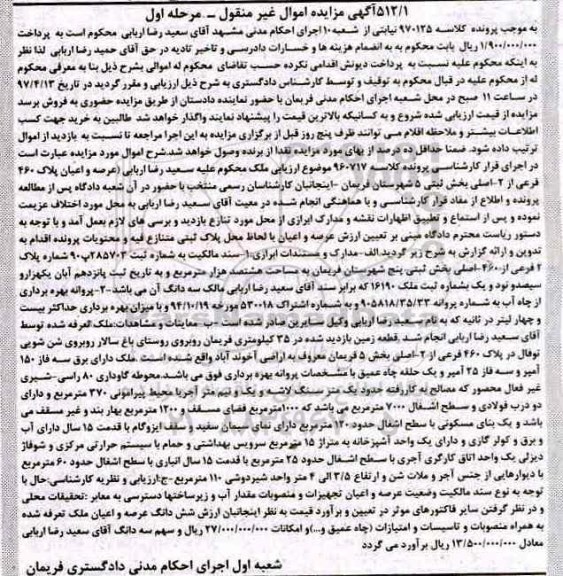 ۵۱۲/۱آگهی مزایده اموال غیر منقول ـ مرحله اول
به موجب پرونده کلاسه ۹۷۰۱۲۵ نیابتی از شعبه ۱۰ اجرای احکام مدنی مشهد آقای سعید رضا اربابی محکوم است به پرداخت
۱/۹۰۰/۰۰۰/۰۰۰ ریال بابت محکوم به به انضمام هزینه ها و خسارات دادرسی و تاخیر تادیه در حق آقای حمید رضا اربابی لذا نظر
به اینکه محکوم علیه نسبت به پرداخت دیونش اقدامی نکرده حسب تقاضای محکوم له اموالی بشرح ذیل بنا به معرفی محکوم
له از محکوم علیه در قبال محکوم به توقیف و توسط کارشناس دادگستری به شرح ذیل ارزیابی و مقرر گردید در تاریخ ۹۷/۴/۱۳
در ساعت ۱۱ صبح در محل شعبه اجرای احکام مدنی فریمان با حضور نماینده دادستان از طریق مزایده حضوری به فروش برسد
مزایده از قیمت ارزیابی شده شروع و به کسانیکه بالاترین قیمت را پیشنهاد نمایند واگذار خواهد شد طالبین به خرید جهت کسب
اطلاعات بیشتر و ملاحظه اقلام می توانند ظرف پنج روز قبل از برگزاری مزایده به این اجرا مراجعه تا نسبت به بازدید از اموال
ترتیب داده شود. ضمنا حداقل ده درصد از بهای مورد مزایده نقدا از برنده وصول خواهد شد.شرح اموال مورد مزایده عبارت است
در اجرای قرار کارشناسی پرونده کلاسه ۹۶۰۷۱۷ موضوع ارزیابی ملک محکوم علیه سعید رضا اربابی (عرصه و اعیان پلاک ۴۶۰
فرعی از ۲-اصلی بخش ثبتی ۵ شهرستان فریمان -اینجانبان کارشناسان رسمی منتخب با حضور در آن شعبه دادگاه پس از مطالعه
پرونده و اطلاع از مفاد قرار کارشناسی و با هماهنگی انجام شده در معیت آقای سعید رضا اربابی به محل مورد اختلاف عزیمت
نموده و پس از استماع و تطبیق اظهارات نقشه و مدارک ابرازی از محل مورد تنازع بازدید و برسی های لازم بعمل آمد و با توجه به
دستور ریاست محترم دادگاه مبنی بر تعیین ارزش عرصه و اعیان با لحاظ محل پلاک ثبتی متنازع فیه و محتویات پرونده اقدام به
تدوین و ارائه گزارش به شرح زیر گردید.الف-مدارک و مستندات ابرازی:۱-سند مالکیت به شماره ثبت ۲۸۵۷۰۳ب۹۰ شماره پلاک
۲ فرعی از ۴۶۰-اصلی بخش ثبتی پنج شهرستان فریمان به مساحت هشتصد هزار مترمربع و به تاریخ ثبت پانزدهم آبان یکهزارو
سیصدو نود و یک بشماره ثبت ملک ۱۶۱۹۰ که برابر سند آقای سعید رضا اربابی مالک سه دانگ آن می باشد-۲-پروانه بهره برداری
از چاه آب به شماره پروانه ۹۰۵۸۱۸/۳۵/۳۳ و به شماره اشتراک ۵۳۰۰۱۸ مورخه ۹۴/۱۰/۱۹ و با میزان بهره برداری حداکثر بیست
و چهار لیتر در ثانیه که به نام سعید رضا اربابی وکیل سایرین صادر شده است -ب- معاینات و مشاهدات:ملک تعرفه شده توسط
آقای سعید رضا اربابی انجام شد .قطعه زمین بازدید شده در ۳۵ کیلومتری فریمان روبروی روستای باغ سالار روبروی شن شویی
توفال در پلاک ۴۶۰ فرعی از ۲-اصلی بخش ۵ فریمان معروف به اراضی آخوند آباد واقع شده است .ملک دارای برق سه فاز ۱۵۰
آمپر و سه فاز ۲۵ آمپر و یک حلقه چاه عمیق با مشخصات پروانه بهره برداری فوق می باشد.محوطه گاوداری ۸۰ راسی-شیری
غیر فعال محصور که مصالح به کاررفته حدود یک متر سنگ لاشه و یک و نیم متر آجربا محیط پیرامونی ۳۷۰ مترمربع و دارای
دو درب فولادی و سطح اشغال ۷۰۰۰ مترمربع می باشد که ۱۰۰۰مترمربع فضای مسقف و ۱۲۰۰ مترمربع بهار بند و غیر مسقف می
باشد و یک بنای مسکونی با سطح اشغال حدود ۱۲۰ مترمربع دارای نمای سیمان سفید و سقف ایزوگام با قدمت ۱۵ سال دارای آب
و برق و کولر گازی و دارای یک واحد آشپزخانه به متراژ ۱۵ مترمربع سرویس بهداشتی و حمام با سیستم حرارتی مرکزی و شوفاژ
دیزلی یک واحد اتاق کارگری آجری با سطح اشغال حدود ۲۵ مترمربع با قدمت ۱۵ سال انباری با سطح اشغال حدود ۶۰ مترمربع
با دیوارهایی از جنس آجر و ملات شن و ارتفاع ۳/۵ الی ۴ متر واحد شیردوشی ۱۱۰ مترمربع-ج-ارزیابی و نظریه کارشناسی:حال با
توجه به نوع سند مالکیت وضعیت عرصه و اعیان تجهیزات و منصوبات مقدار آب و زیرساختها دسترسی به معابر :تحقیقات محلی
و در نظر گرفتن سایر فاکتورهای موثر در تعیین و برآورد قیمت به نظر اینجانبان ارزش شش دانگ عرصه و اعیان ملک تعرفه شده
به همراه منصوبات و تاسیسات و امتیازات (چاه عمیق و...)و امکانات ۲۷/۰۰۰/۰۰۰/۰۰۰ ریال و سهم سه دانگ آقای سعید رضا اربابی
معادل ۱۳/۵۰۰/۰۰۰/۰۰۰ ریال برآورد می گردد
شعبه اول اجرای احکام مدنی دادگستری فریمان